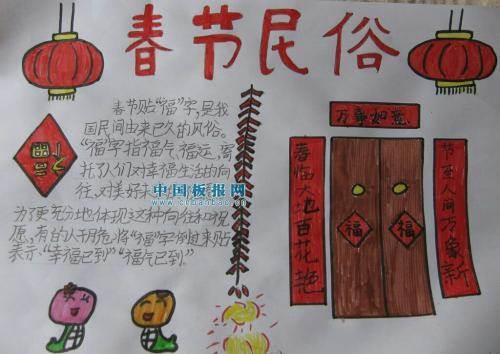 春节民俗
春节贴“福”字,是我
国民间由来已久的风俗。
“福”字指福气、福运,寄
托了人们对幸福生活的向
往,对美好未
中国板报网
为了更充分地体现这种向往和祝
愿,有的人干脆将“福”字倒过来贴
表示:“幸福已到”“福气已到”。
福
万事如意
春临大地百花艳
节至人间万象新
福
福